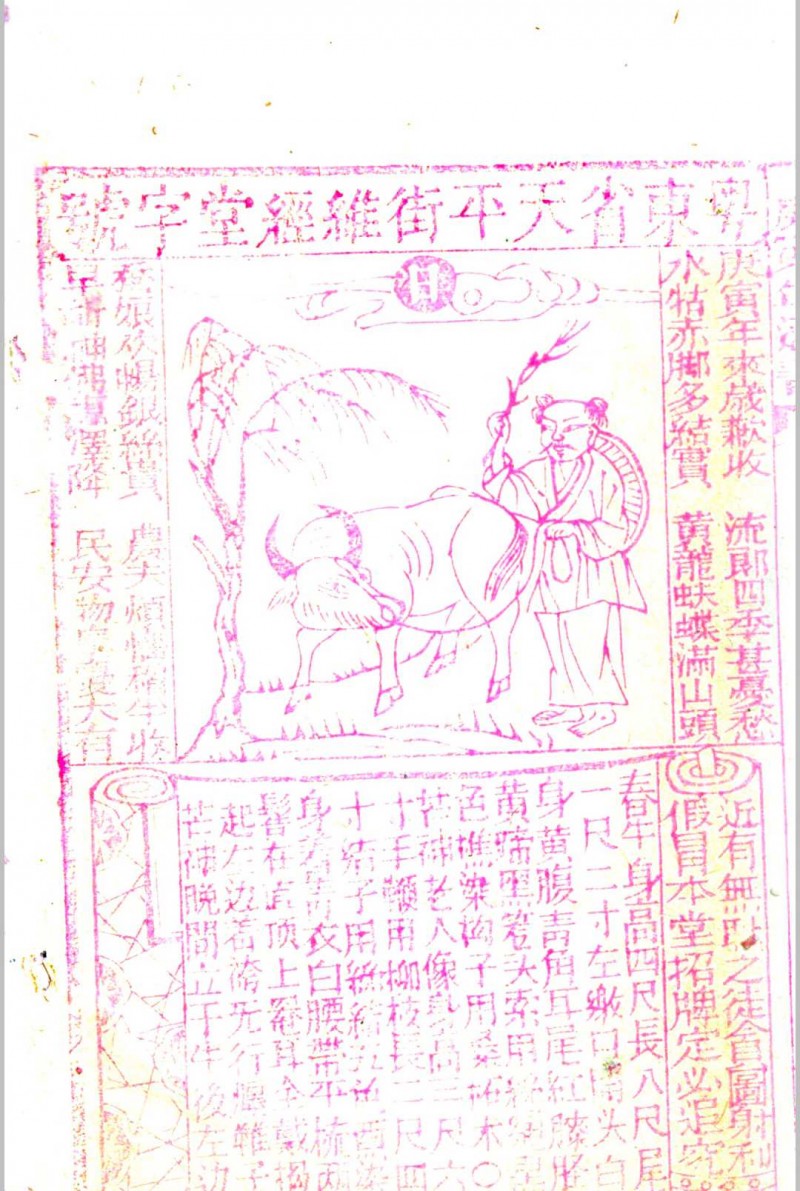 粵東省天平街維經堂字號
庚寅年來歲歉收 流郎四季甚憂愁
水牯赤脚多結實 黄龍蚨蝶滿山頭
日
蠶娘 銀絲貴 農夫 年收
澤降 民安物 大有
近有無恥之徒貪圖射利
假冒本堂招牌定必追究
春牛身高四尺長八尺尾
一尺二寸左繳口 头白
身黄腹青角耳尾紅膝脛
黄蹄黑籠头索用絲繩黑
色樵染构子用桑柘木〇
芒神老人像身高三尺六
寸手鞭用柳枝長二尺四
寸結子用絲結五色 染
身着青衣白腰帶平梳两
髻在 頂上罨耳全戴揭
起左边着 行纏鞋子
芒神晚間立于牛後左边